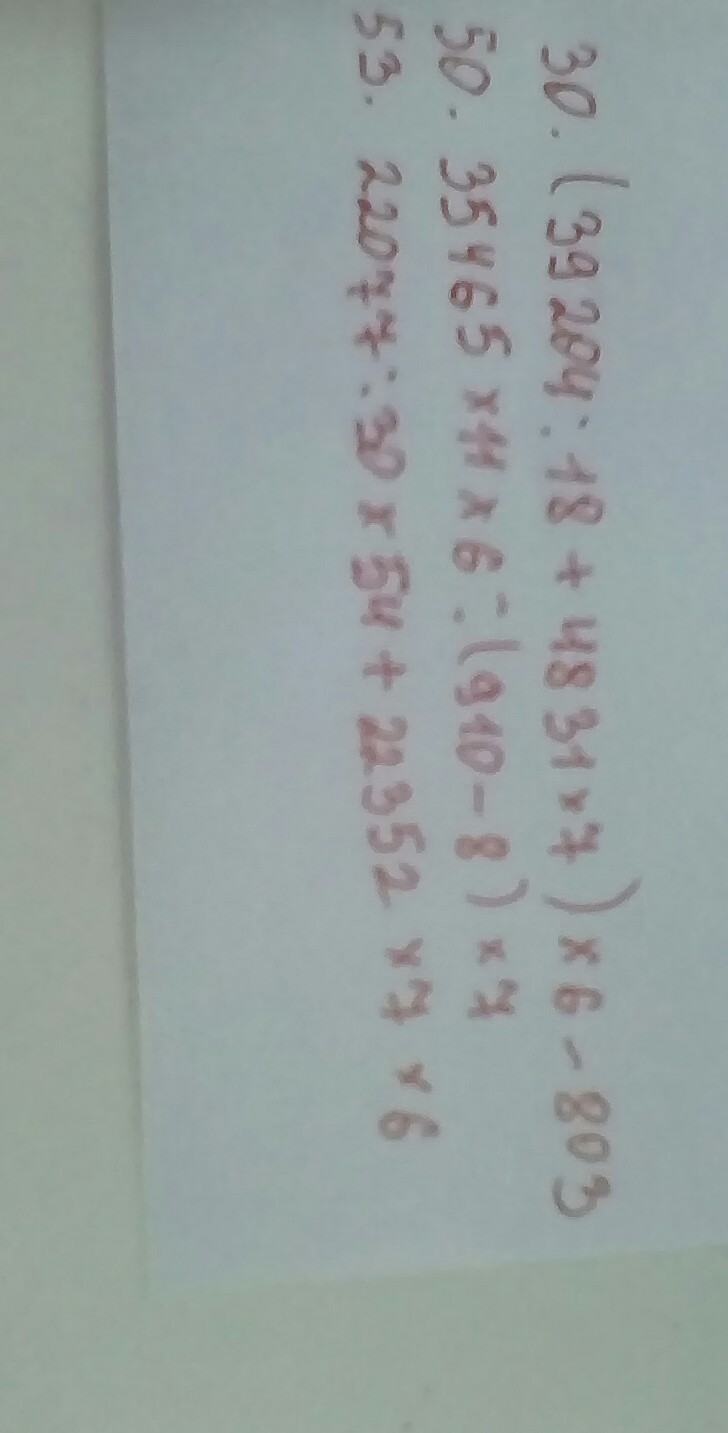 30. (39204:18 + 4831 x 7) x 6 - 803
50. 35465 x 11 x 6 : (910 - 8) x 7
53. 22077 : 30 x 54 + 22352 x 7 x 6